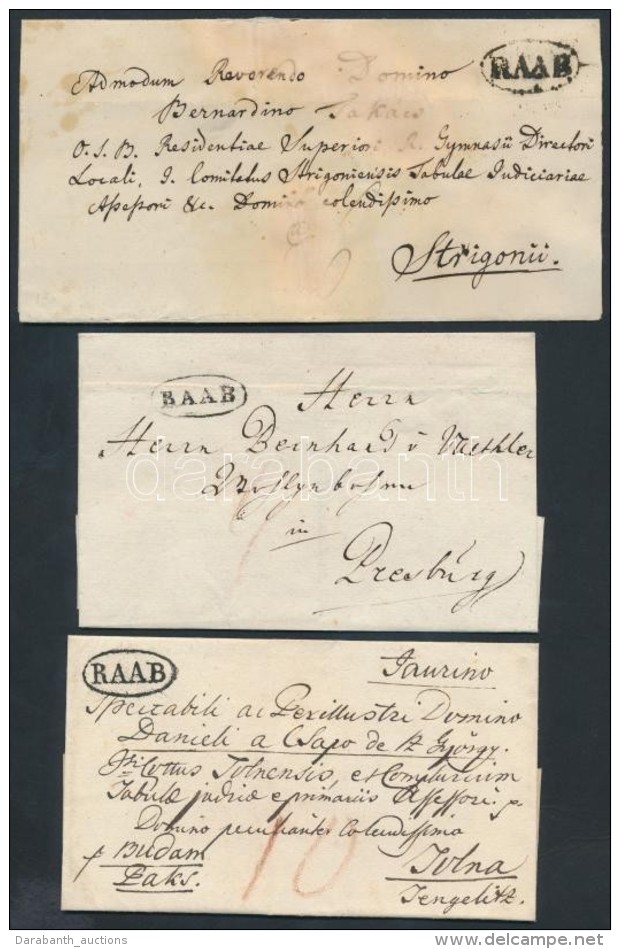 RAAB
Admodum Reverendo Domino
Bernardino Takács
O. S. B. Residentiae Superiori R. Gymnasii Directori
Locali, I. Comitatus Strigoniensis Tabulae Judiciariae
Assessori &c. Domino colendissimo
Strigonii.
RAAB
Herrn
Herrn Bernhard v
in
Presburg
RAAB
Taurino
Spectabili ac Perillustri Domino
Danieli a Csapo de Sz György.
Tolnensis, et Complurium
Tabulæ judriæ primariis Assessori. p.
Domino Colendissimo
p Budam
Paks.
Tolna
Tengelitz.
10
darabanth
Darabanth_auctions
delcampe.net